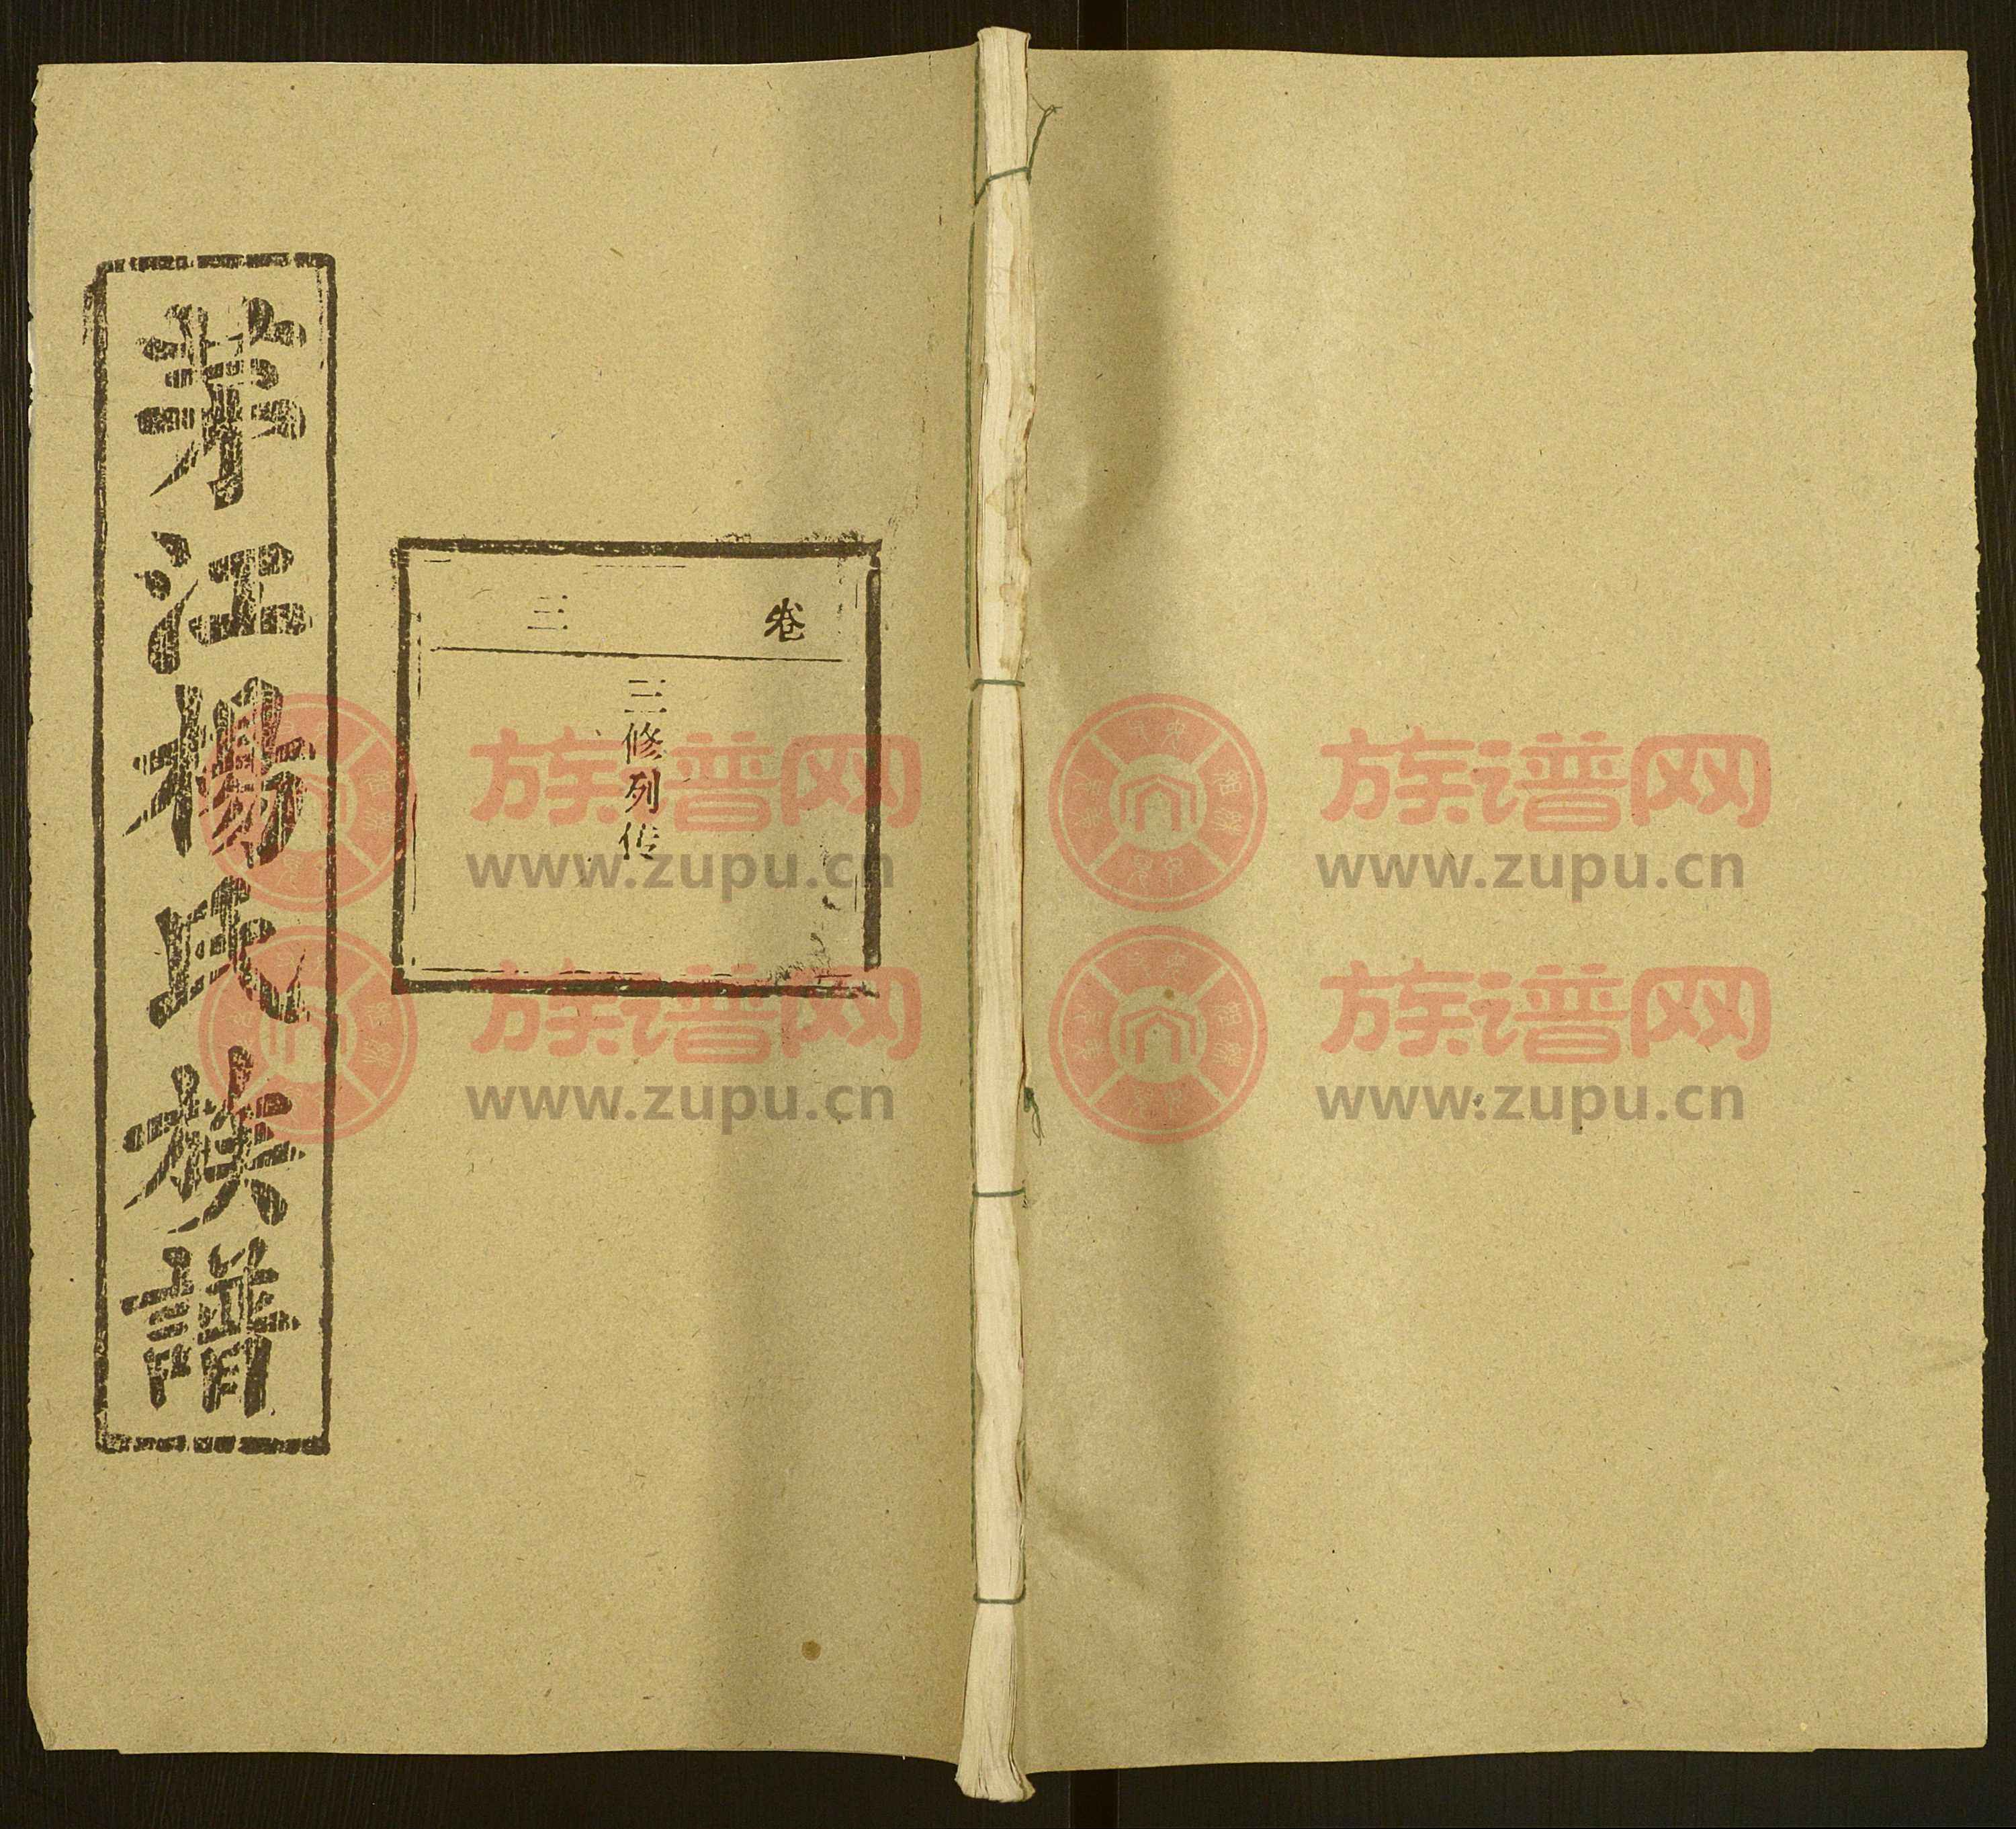 茅江楊氏族譜
卷三
三修列传
族谱网
www.zupu.cn
族谱网
www.zupu.cn
族谱网
www.zupu.cn
族谱网
www.zupu.cn